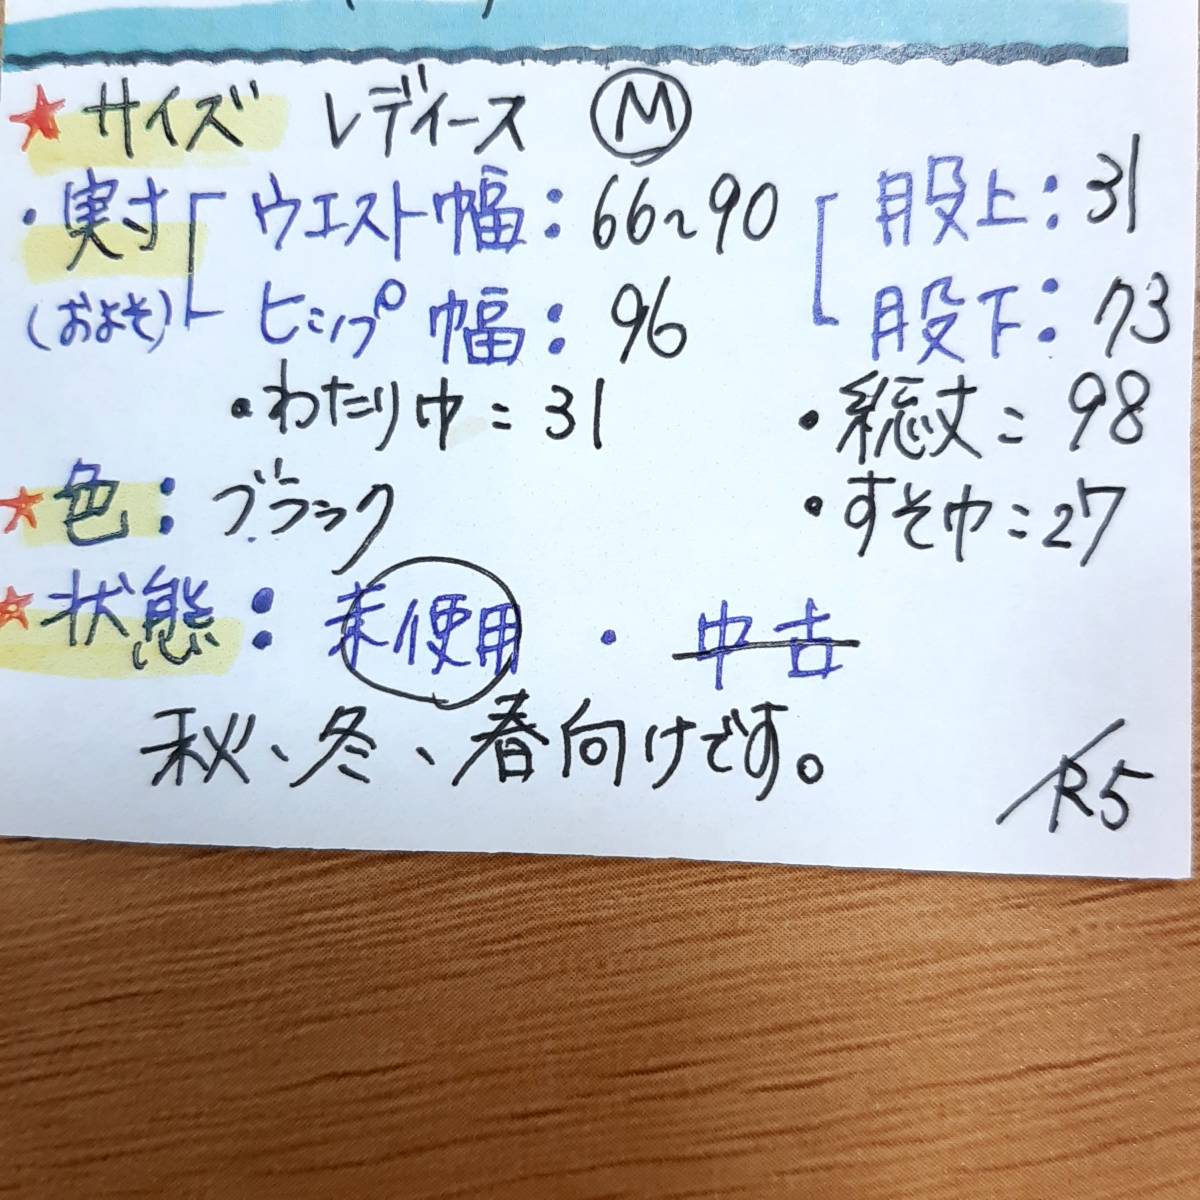 ★サイズ レディース Ⓜ
・実寸 ウエスト幅：66~90 股上：31
(およそ) ヒップ幅：96 股下：73
・わたり巾=31 ・総丈=98
★色：ブラック ・すそ巾=27
★状態：未使用・中古
秋、冬、春向けです。
R5